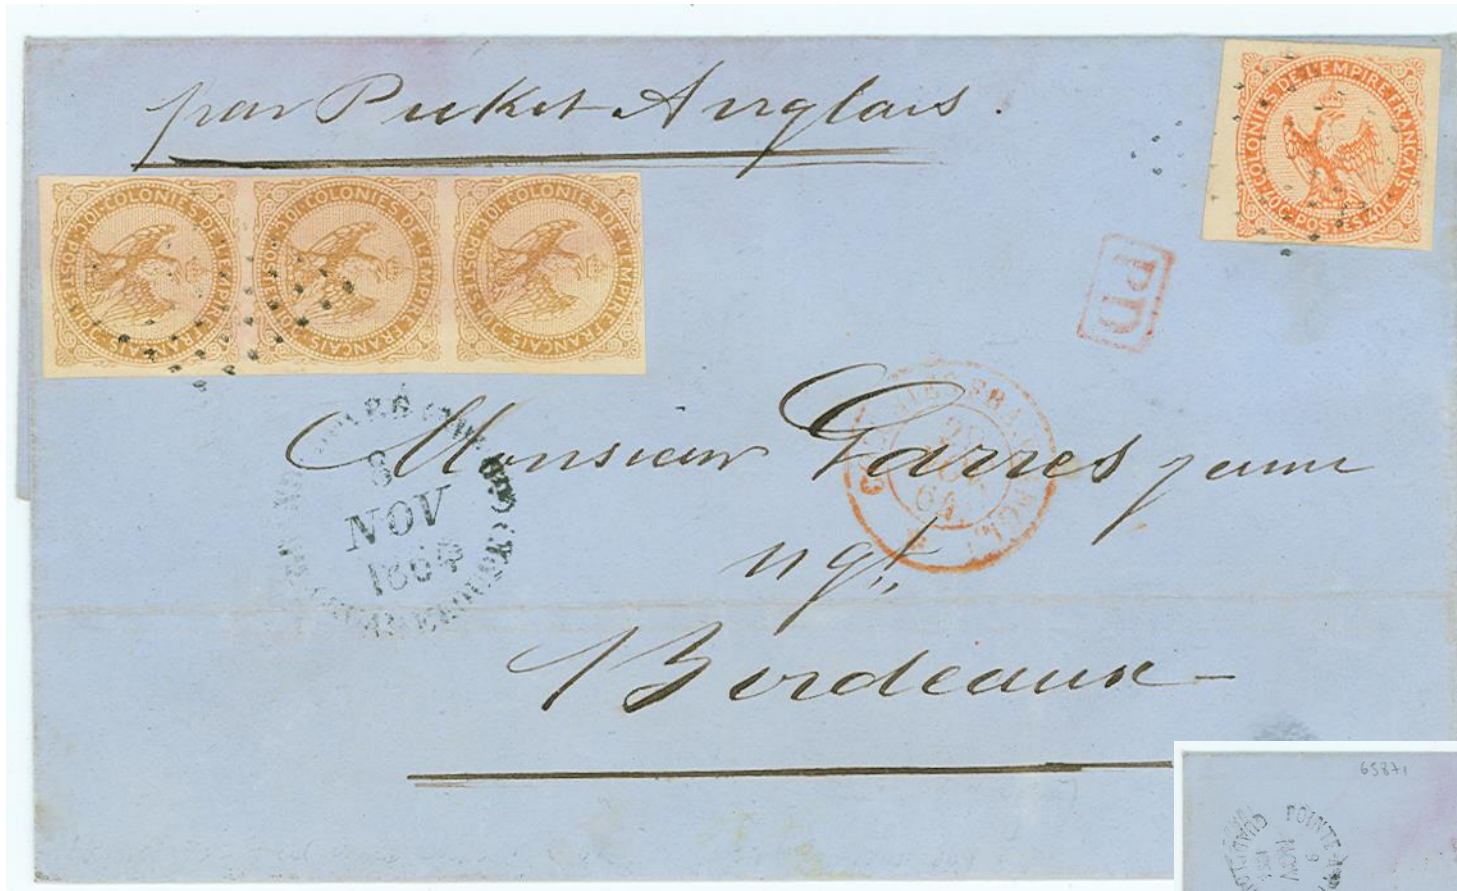 par Packet Anglais.
COLONIES DE L'EMPIRE FRANÇAIS
40c POSTES 40c
COLONIES DE L'EMPIRE FRANÇAIS
10c POSTES 10c
COLONIES DE L'EMPIRE FRANÇAIS
10c POSTES 10c
COLONIES DE L'EMPIRE FRANÇAIS
10c POSTES 10c
PD
8
NOV
1864
Monsieur Garres jeune
ngt
Bordeaux
65871
POINTE-A-P
9
NOV